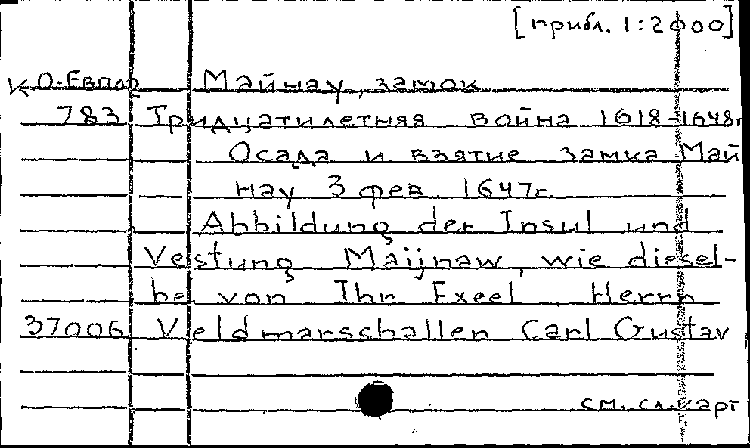 [прибл. 1:2000]
К О-Евпор Майнау, замок
783 Тридцатилетняя война 1618-1648г
Осада и взятие замка Май
нау 3 фев. 1647г.
Abbildung der Insul und
Vestung Maijnaw, wie diesel-
be von Ihr Excel. Herrn
37006 Veldmarschallen Carl Gustav
см. сл. карт